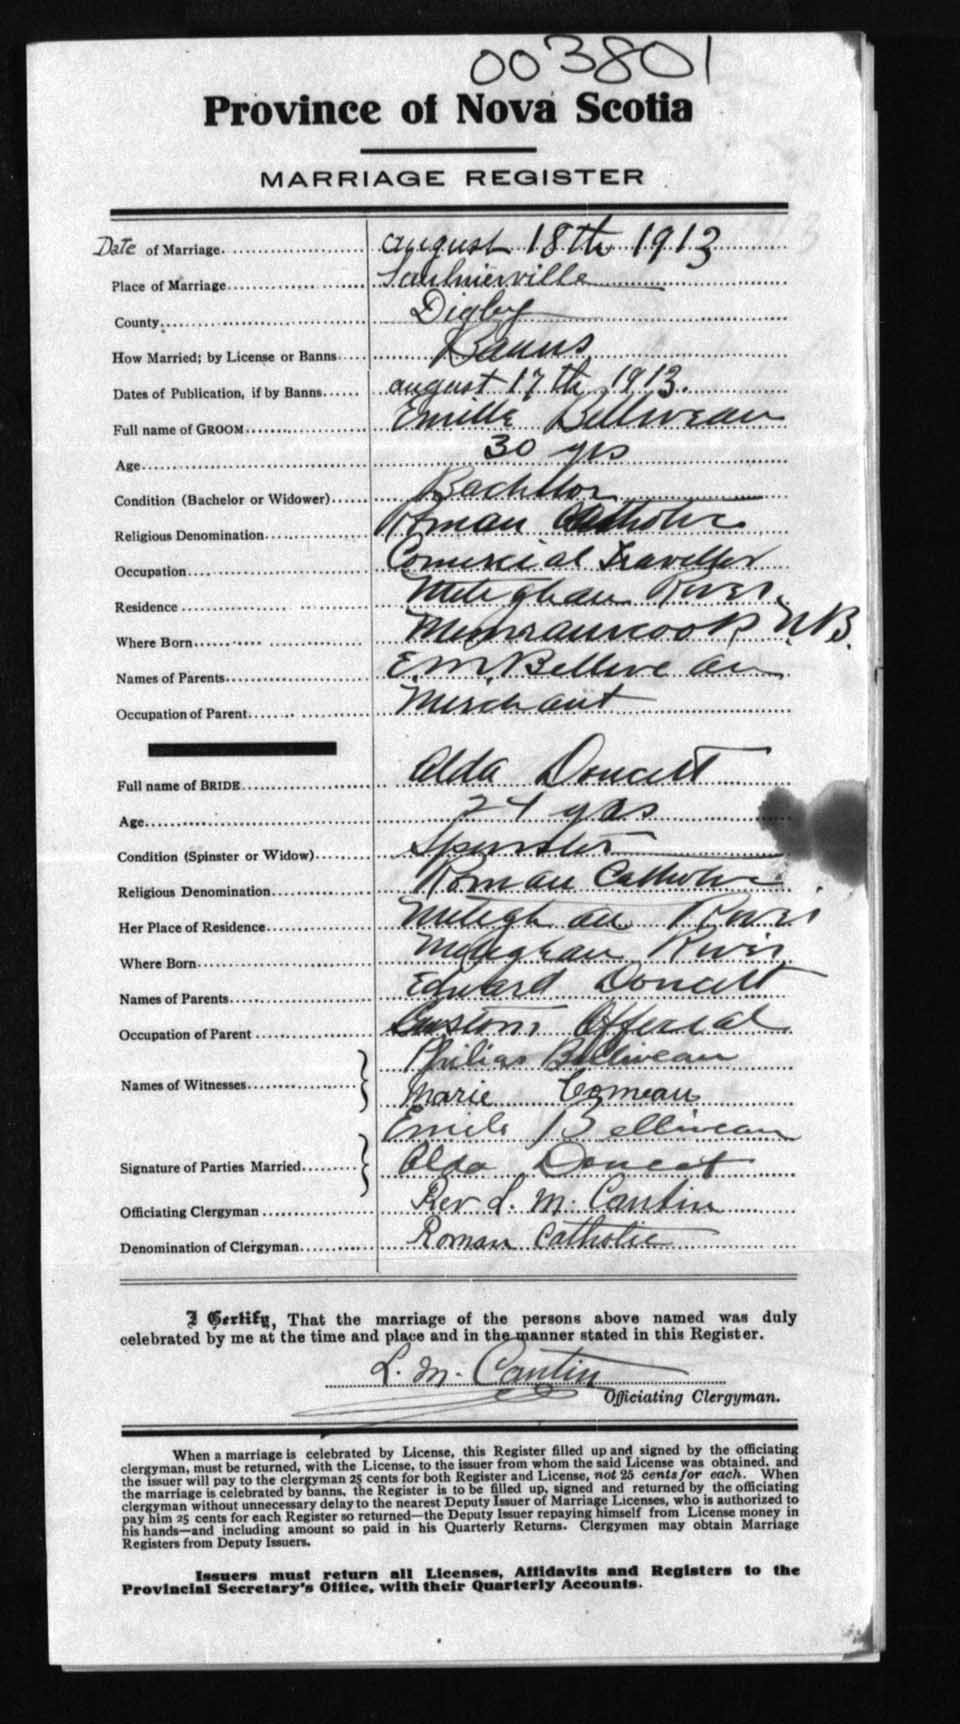 003801
Province of Nova Scotia
MARRIAGE REGISTER
Date of Marriage august 18th 1913
Place of Marriage Saulnierville
County Digby
How Married; by License or Banns Banns
Dates of Publication, if by Banns august 17th 1913.
Full name of GROOM Emille Belliveau
Age 30 yrs
Condition (Bachelor or Widower) Bachelor
Religious Denomination Roman Catholic
Occupation Comercial Traveller
Residence Meteghan River
Where Born Memramcook N.B.
Names of Parents E.M. Belliveau
Occupation of Parent Merchant
Full name of BRIDE Alda Doucett
Age 24 yrs
Condition (Spinster or Widow) Spinster
Religious Denomination Roman Catholic
Her Place of Residence Meteghan River
Where Born Meteghan River
Names of Parents Edward Doucett
Occupation of Parent Customs Official
Names of Witnesses Philias Belliveau
Marie Comeau
Signature of Parties Married Emile Belliveau
Alda Doucet
Officiating Clergyman Rev L. M. Cantin
Denomination of Clergyman Roman Catholic
I Certify, That the marriage of the persons above named was duly
celebrated by me at the time and place and in the manner stated in this Register.
L. M. Cantin
Officiating Clergyman.
When a marriage is celebrated by License, this Register filled up and signed by the officiating
clergyman, must be returned, with the License, to the issuer from whom the said License was obtained, and
the issuer will pay to the clergyman 25 cents for both Register and License, not 25 cents for each. When
the marriage is celebrated by banns, the Register is to be filled up, signed and returned by the officiating
clergyman without unnecessary delay to the nearest Deputy Issuer of Marriage Licenses, who is authorized to
pay him 25 cents for each Register so returned—the Deputy Issuer repaying himself from License money in
his hands—and including amount so paid in his Quarterly Returns. Clergymen may obtain Marriage
Registers from Deputy Issuers.
Issuers must return all Licenses, Affidavits and Registers to the
Provincial Secretary's Office, with their Quarterly Accounts.